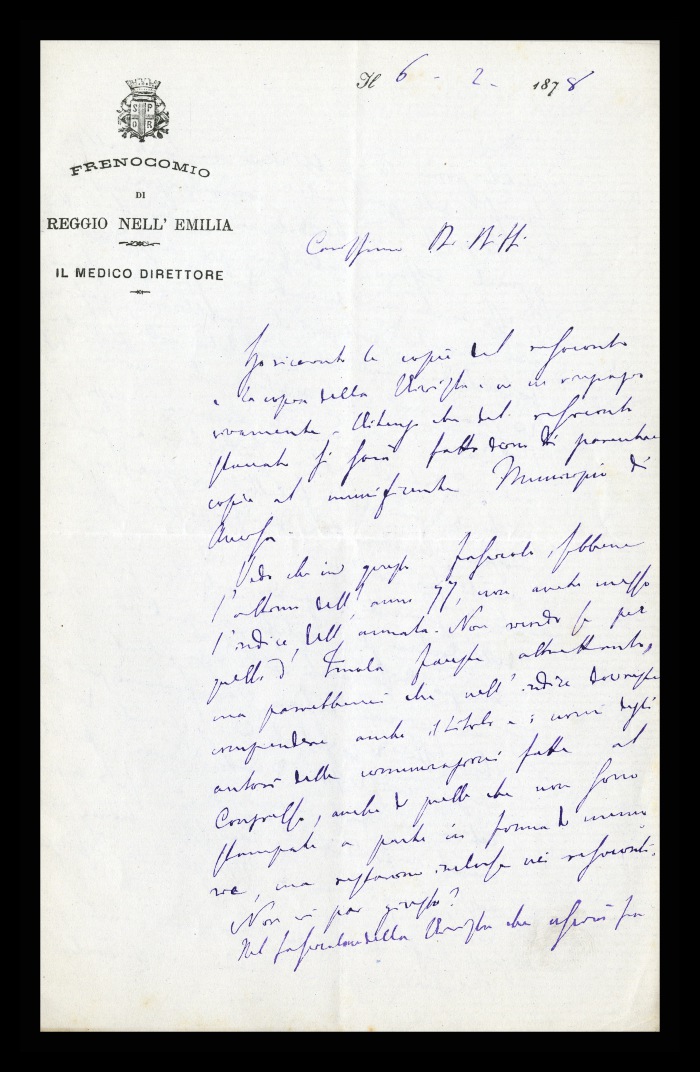 Il 6 - 2 - 1878
S P
Q R
FRENOCOMIO
DI
REGGIO NELL' EMILIA
IL MEDICO DIRETTORE
Carissimo Dr. Biffi
Ho ricevuto le copie del resoconto
e la copia della Rivista e ve ne ringrazio
vivamente. Ritengo che del resoconto
stampato si sarà fatto dono di parecchie
copie al munificente Municipio di
Aversa.
Vedo che in questo fascicolo, sebbene
l'ultimo dell'anno 77, non avete messo
l'indice dell'annata. Non ricordo se per
quello d'Imola faceste altrettanto,
ma parrebbemi che nell'indice dovreste
comprendere anche il titolo e i nomi degli
autori delle comunicazioni fatte al
Congresso, anche di quelle che non sono
stampate a parte in forma di memo
rie, ma restarono incluse nei resoconti.
Non vi par giusto?
Nel fascicolo della Rivista che uscirà fra